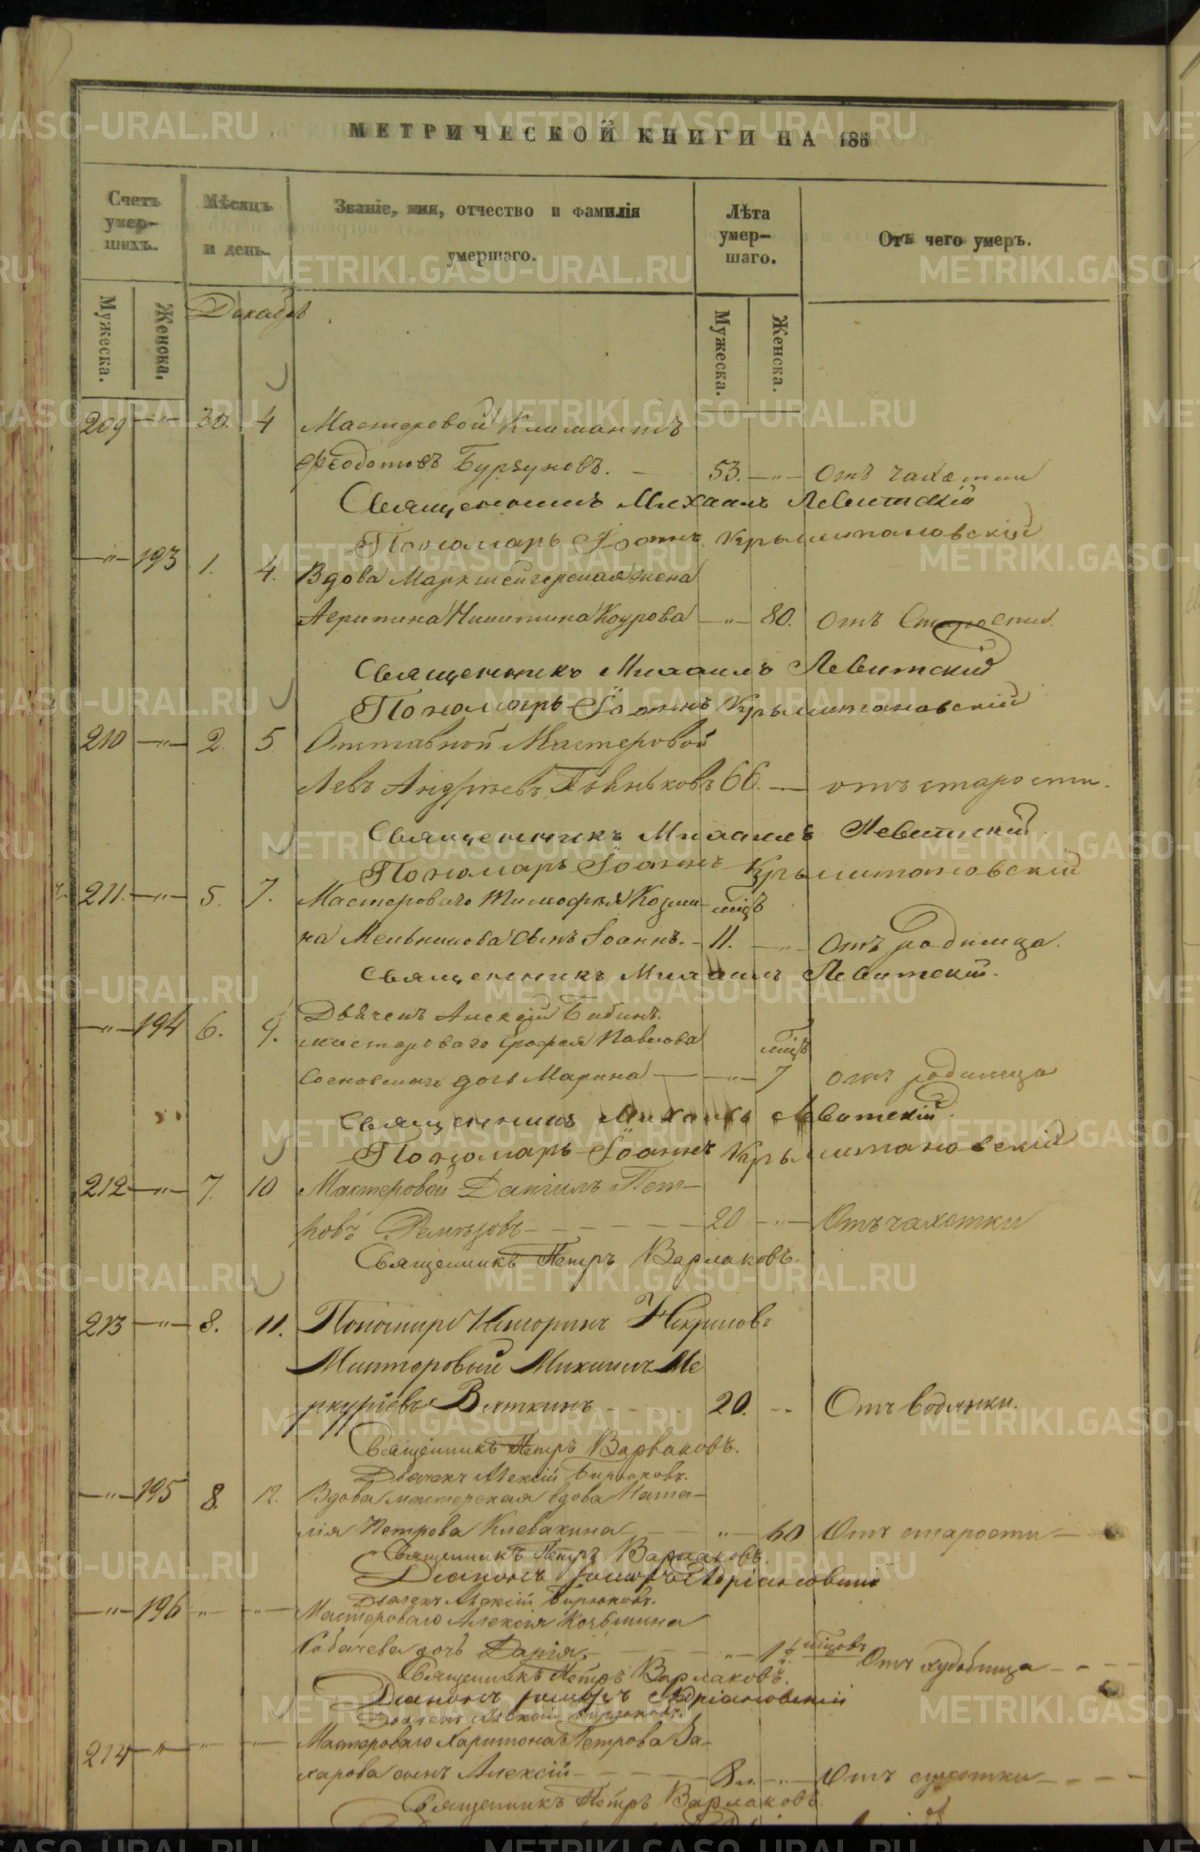 МЕТРИЧЕСКОЙ КНИГИ НА 185
Счетъ умер-шихъ.
Мѣсяцъ и день.
Званіе, имя, отчество и фамилія умершаго.
Лѣта умер-шаго.
Отъ чего умеръ.
Мужеска.
Женска.
Декабрь
Мужеска.
Женска.
209 —"— 30. 4 Мастеровой Климантъ
Ѳеодотовъ Бурзуновъ. — 53. —"— Отъ чахотки
Священникъ Михаилъ Левитскій
Пономарь Іоаннъ
—"— 193 1. 4. Вдова Маркшейгерская жена
Никитина Коурова —"— 80. отъ Старости.
Священникъ Михаилъ Левитскій
Пономарь Іоаннъ
210 —"— 2 5. Отставной Мастеровой
Левъ Андреевъ Пѣньковъ 66. — отъ старости.
Священникъ Михаилъ Левитскій
Пономарь Іоаннъ
211. —"— 5. 7. Мастероваго Тимофея Козми- мцъ
на Меньшикова сынъ Іоаннъ. — 11. — Отъ родимца.
Священникъ Михаилъ Левитскій.
—"— 194 6. 9. Дьячекъ Алексій
мастероваго Павлова мцъ
дочь Марина — —"— 7 отъ родимца
Священникъ Михаилъ Левитскій.
Пономарь Іоаннъ
212 —"— 7. 10 Мастеровой Даніилъ Пет-
ровъ Ремезовъ 20 —"— Отъ чахотки
Священникъ Петръ Варлаковъ.
213 —"— 8. 11. Пономарь Некрасовъ
Мастеровый Михаилъ Ме
ркурьевъ Вяткинъ 20. Отъ водянки.
Священникъ Петръ Варлаковъ.
Дьячекъ Алексій Бирюковъ.
—"— 195 8. 12. Вдова мастерская вдова Ната-
лія Петрова Клевакина —"— 60 Отъ старости
Священникъ Петръ Варлаковъ.
Діаконъ Адріановскій
Дьячекъ Алексій Бирюковъ.
—"— 196 —"— —"— Мастероваго Алексія Козьмина
дочь Дарія —"— 1½ мцовъ Отъ худобища
Священникъ Петръ Варлаковъ.
Діаконъ Адріановскій
Дьячекъ Алексій Бирюковъ.
214 —"— —"— —"— Мастероваго Харитона Петрова За-
харова сынъ Алексій 8 м. —"— Отъ
Священникъ Петръ Варлаковъ.
METRIKI.GASO-URAL.RU